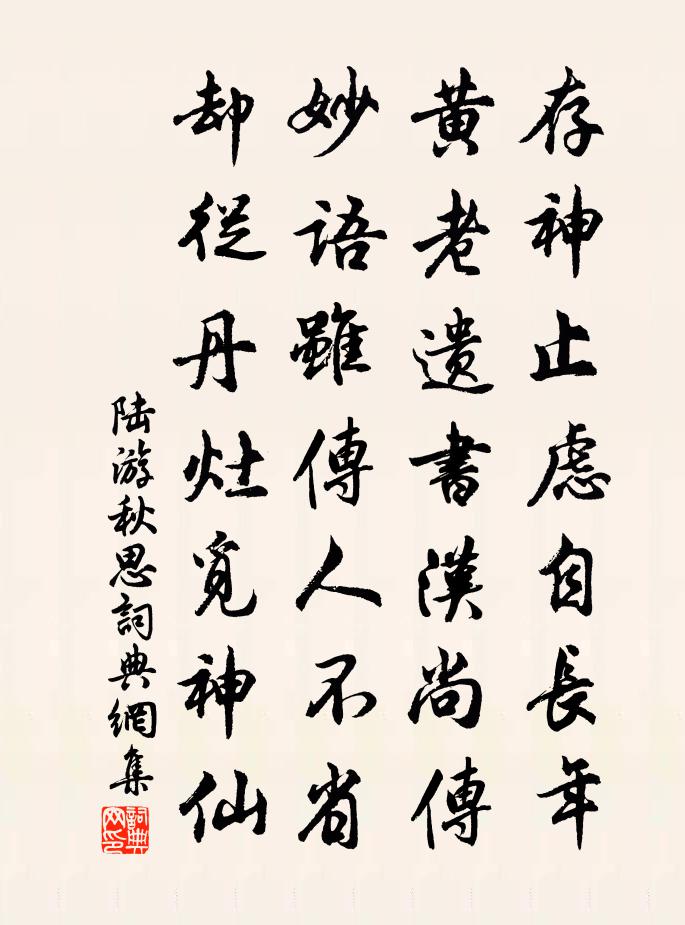 存神止慮自長年
黃老遺書漢尚傳
妙語雖傳人不省
却從丹灶覓神仙
陆游秋思詞典網集
詞典網印